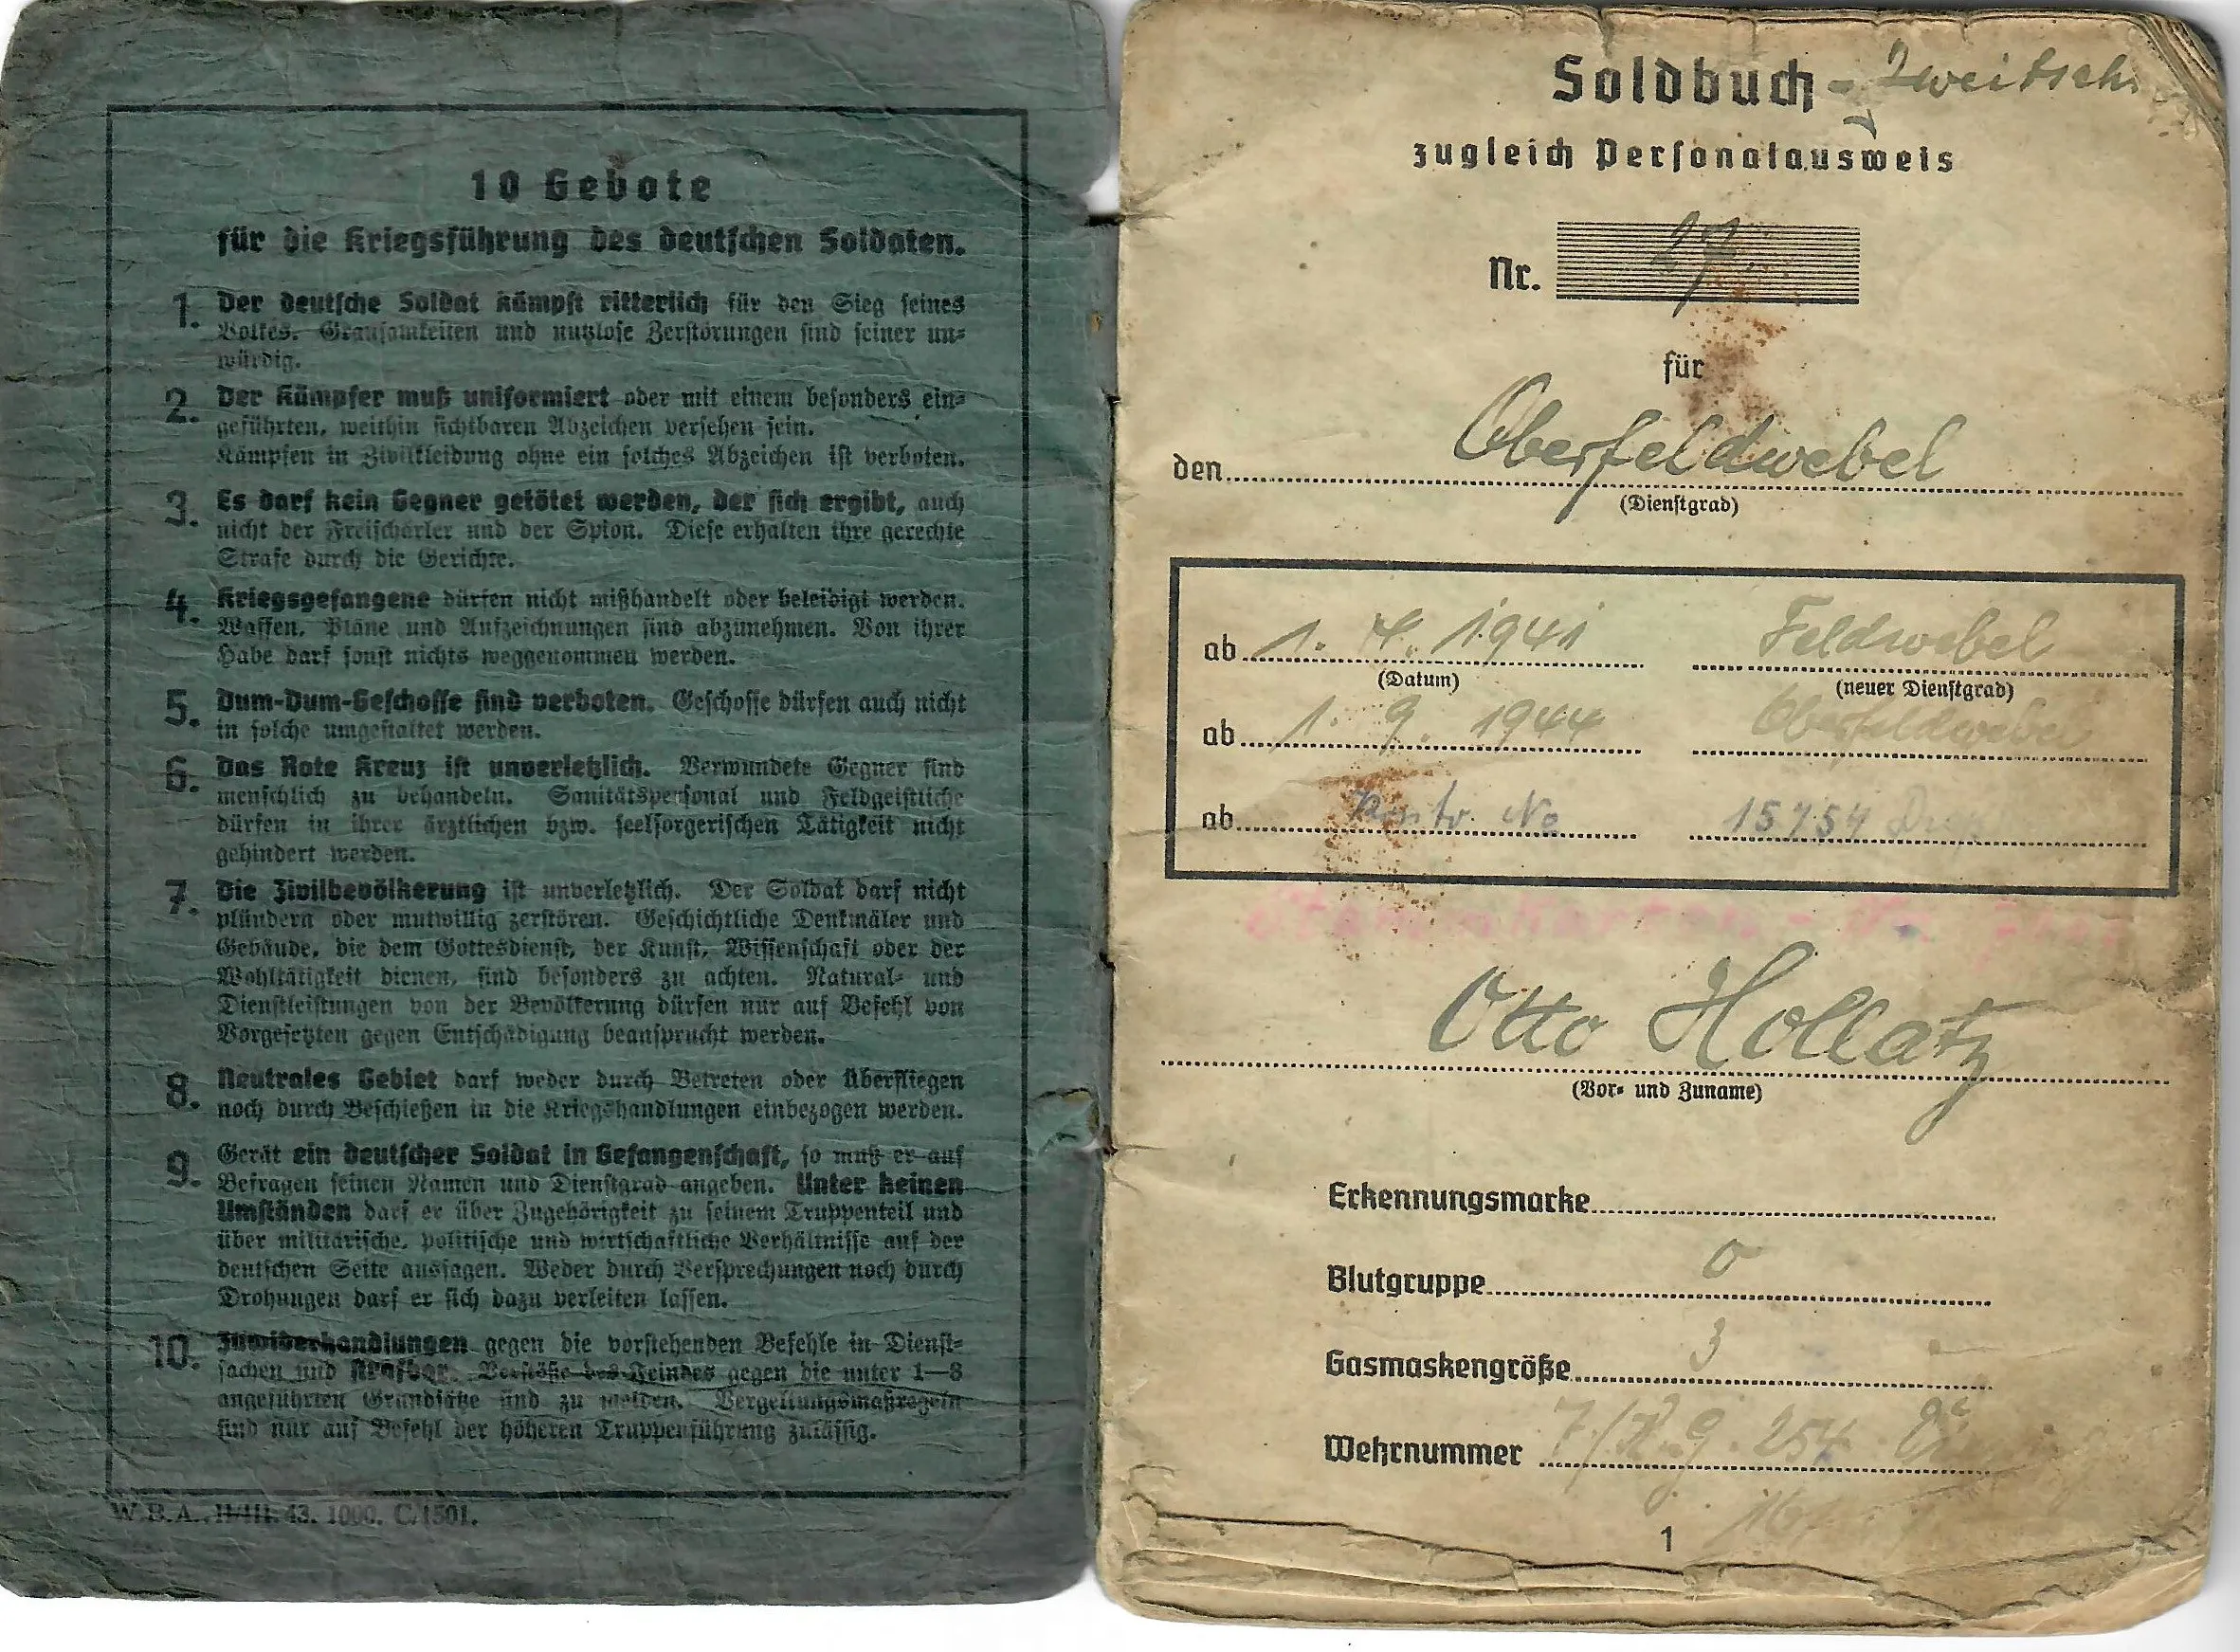 10 Gebote
für die Kriegsführung des deutschen Soldaten.
1. Der deutsche Soldat kämpft ritterlich für den Sieg seines
Volkes. Grausamkeiten und nutzlose Zerstörungen sind seiner un-
würdig.
2. Der Kämpfer muß uniformiert oder mit einem besonders ein-
geführten, weithin sichtbaren Abzeichen versehen sein.
Kämpfen in Zivilkleidung ohne ein solches Abzeichen ist verboten.
3. Es darf kein Gegner getötet werden, der sich ergibt, auch
nicht der Freischärler und der Spion. Diese erhalten ihre gerechte
Strafe durch die Gerichte.
4. Kriegsgefangene dürfen nicht mißhandelt oder beleidigt werden.
Waffen, Pläne und Aufzeichnungen sind abzunehmen. Von ihrer
Habe darf sonst nichts weggenommen werden.
5. Dum-Dum-Geschosse sind verboten. Geschosse dürfen auch nicht
in solche umgestaltet werden.
6. Das Rote Kreuz ist unverletzlich. Verwundete Gegner sind
menschlich zu behandeln. Sanitätspersonal und Feldgeistliche
dürfen in ihrer ärztlichen bzw. seelsorgerischen Tätigkeit nicht
gehindert werden.
7. Die Zivilbevölkerung ist unverletzlich. Der Soldat darf nicht
plündern oder mutwillig zerstören. Geschichtliche Denkmäler und
Gebäude, die dem Gottesdienst, der Kunst, Wissenschaft oder der
Wohltätigkeit dienen, sind besonders zu achten. Natural- und
Dienstleistungen von der Bevölkerung dürfen nur auf Befehl von
Vorgesetzten gegen Entschädigung beansprucht werden.
8. Neutrales Gebiet darf weder durch Betreten oder Überfliegen
noch durch Beschießen in die Kriegshandlungen einbezogen werden.
9. Gerät ein deutscher Soldat in Gefangenschaft, so muß er auf
Befragen seinen Namen und Dienstgrad angeben. Unter keinen
Umständen darf er über Zugehörigkeit zu seinem Truppenteil und
über militärische, politische und wirtschaftliche Verhältnisse auf der
deutschen Seite aussagen. Weder durch Versprechungen noch durch
Drohungen darf er sich dazu verleiten lassen.
10. Zuwiderhandlungen gegen die vorstehenden Befehle in Dienst-
sachen sind strafbar. Verstöße des Feindes gegen die unter 1—8
angeführten Grundsätze sind zu melden. Vergeltungsmaßregeln
sind nur auf Befehl der höheren Truppenführung zulässig.
W.B.A. II/III. 43. 1000. C/1501.
Soldbuch - Zweitschr
zugleich Personalausweis
Nr. 27.
für
den Oberfeldwebel
(Dienstgrad)
ab 1. 4. 1941 Feldwebel
(Datum) (neuer Dienstgrad)
ab 1. 9. 1944 Oberfeldwebel
ab No 15754
Otto Hollatz
(Vor- und Zuname)
Erkennungsmarke
Blutgruppe O
Gasmaskengröße 3
Wehrnummer 9. 254
1